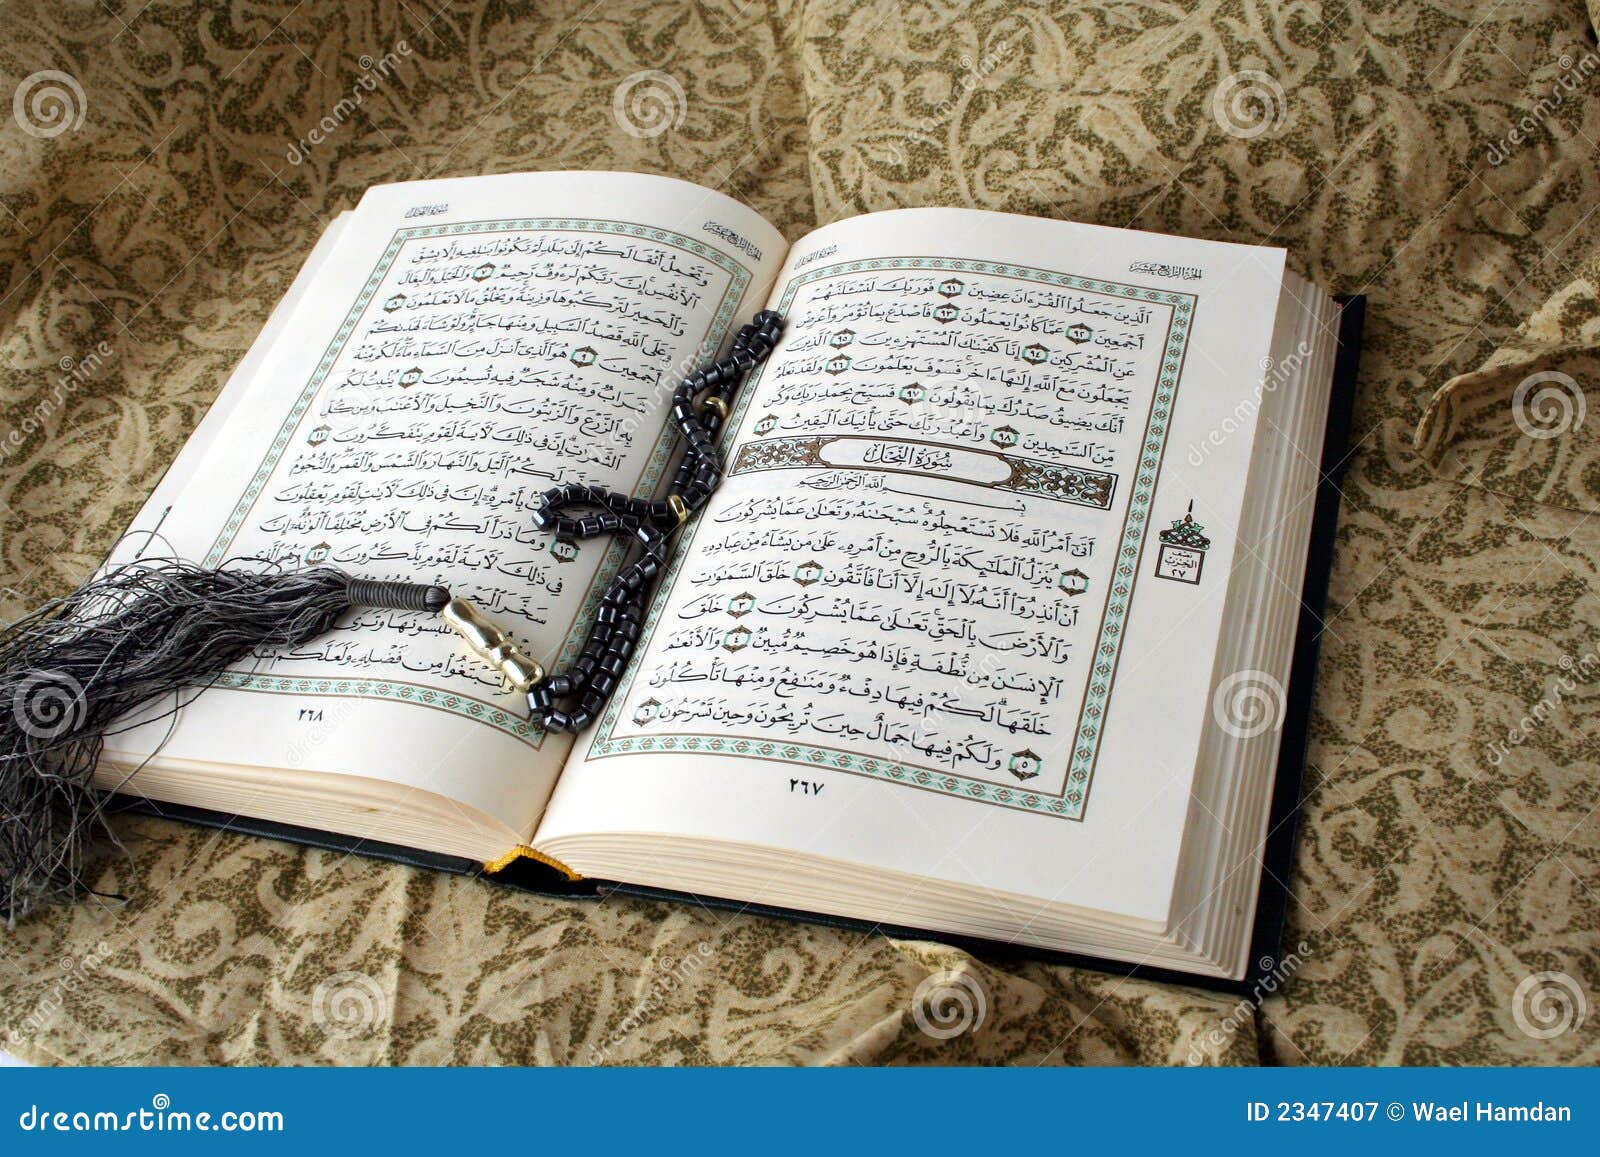 سورة النحل
الجزء الرابع عشر
الَّذِينَ جَعَلُوا الْقُرْءَانَ عِضِينَ ٩١ فَوَرَبِّكَ لَنَسْـَٔلَنَّهُمْ
أَجْمَعِينَ ٩٢ عَمَّا كَانُوا يَعْمَلُونَ ٩٣ فَاصْدَعْ بِمَا تُؤْمَرُ وَأَعْرِضْ
عَنِ الْمُشْرِكِينَ ٩٤ إِنَّا كَفَيْنَاكَ الْمُسْتَهْزِءِينَ ٩٥ الَّذِينَ
يَجْعَلُونَ مَعَ اللَّهِ إِلَـٰهًا ءَاخَرَ فَسَوْفَ يَعْلَمُونَ ٩٦ وَلَقَدْ نَعْلَمُ
أَنَّكَ يَضِيقُ صَدْرُكَ بِمَا يَقُولُونَ ٩٧ فَسَبِّحْ بِحَمْدِ رَبِّكَ وَكُن
مِّنَ السَّـٰجِدِينَ ٩٨ وَاعْبُدْ رَبَّكَ حَتَّىٰ يَأْتِيَكَ الْيَقِينُ ٩٩
سُورَةُ النَّحْلِ
بِسْمِ اللَّهِ الرَّحْمَـٰنِ الرَّحِيمِ
أَتَىٰ أَمْرُ اللَّهِ فَلَا تَسْتَعْجِلُوهُ سُبْحَـٰنَهُ وَتَعَـٰلَىٰ عَمَّا يُشْرِكُونَ
١ يُنَزِّلُ الْمَلَـٰٓئِكَةَ بِالرُّوحِ مِنْ أَمْرِهِ عَلَىٰ مَن يَشَاءُ مِنْ عِبَادِهِ
أَنْ أَنذِرُوا أَنَّهُ لَا إِلَـٰهَ إِلَّا أَنَا فَاتَّقُونِ ٢ خَلَقَ السَّمَـٰوَٰتِ
وَالْأَرْضَ بِالْحَقِّ تَعَـٰلَىٰ عَمَّا يُشْرِكُونَ ٣ خَلَقَ
الْإِنسَـٰنَ مِن نُّطْفَةٍ فَإِذَا هُوَ خَصِيمٌ مُّبِينٌ ٤ وَالْأَنْعَـٰمَ
خَلَقَهَا لَكُمْ فِيهَا دِفْءٌ وَمَنَـٰفِعُ وَمِنْهَا تَأْكُلُونَ
٥ وَلَكُمْ فِيهَا جَمَالٌ حِينَ تُرِيحُونَ وَحِينَ تَسْرَحُونَ ٦
نصف
الحزب
٢٧
٢٦٧
الجزء الرابع عشر
سورة النحل
وَتَحْمِلُ أَثْقَالَكُمْ إِلَىٰ بَلَدٍ لَّمْ تَكُونُوا بَـٰلِغِيهِ إِلَّا بِشِقِّ
الْأَنفُسِ إِنَّ رَبَّكُمْ لَرَءُوفٌ رَّحِيمٌ ٧ وَالْخَيْلَ وَالْبِغَالَ
وَالْحَمِيرَ لِتَرْكَبُوهَا وَزِينَةً وَيَخْلُقُ مَا لَا تَعْلَمُونَ ٨
وَعَلَى اللَّهِ قَصْدُ السَّبِيلِ وَمِنْهَا جَائِرٌ وَلَوْ شَاءَ لَهَدَىٰكُمْ
أَجْمَعِينَ ٩ هُوَ الَّذِي أَنزَلَ مِنَ السَّمَاءِ مَاءً لَّكُم مِّنْهُ
شَرَابٌ وَمِنْهُ شَجَرٌ فِيهِ تُسِيمُونَ ١٠ يُنبِتُ لَكُم
بِهِ الزَّرْعَ وَالزَّيْتُونَ وَالنَّخِيلَ وَالْأَعْنَـٰبَ وَمِن كُلِّ
الثَّمَرَٰتِ إِنَّ فِي ذَٰلِكَ لَآيَةً لِّقَوْمٍ يَتَفَكَّرُونَ ١١
لَكُمُ الَّيْلَ وَالنَّهَارَ وَالشَّمْسَ وَالْقَمَرَ وَالنُّجُومُ
بِأَمْرِهِ إِنَّ فِي ذَٰلِكَ لَآيَـٰتٍ لِّقَوْمٍ يَعْقِلُونَ
١٢ وَمَا ذَرَأَ لَكُمْ فِي الْأَرْضِ مُخْتَلِفًا أَلْوَٰنُهُ إِنَّ
فِي ذَٰلِكَ لَآيَةً لِّقَوْمٍ يَذَّكَّرُونَ ١٣ وَهُوَ الَّذِي
سَخَّرَ الْبَحْرَ
تَلْبَسُونَهَا وَتَرَى
وَلِتَبْتَغُوا مِن فَضْلِهِ وَلَعَلَّكُمْ
٢٦٨
dreamstime.com
ID 2347407 © Wael Hamdan